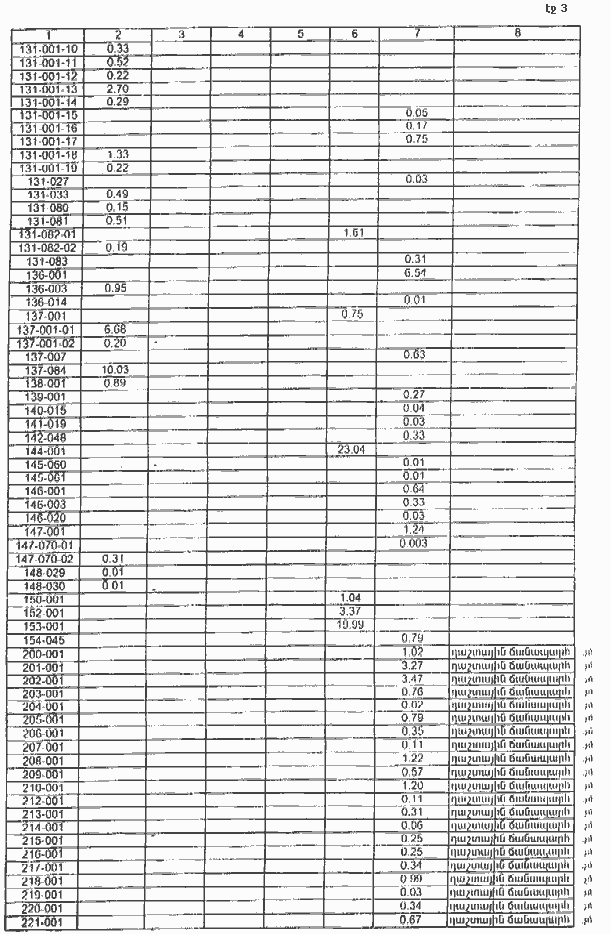 էջ 3
1 2 3 4 5 6 7 8
131-001-10 0.33
131-001-11 0.52
131-001-12 0.22
131-001-13 2.70
131-001-14 0.29
131-001-15 0.05
131-001-16 0.17
131-001-17 0.75
131-001-18 1.33
131-001-19 0.22
131-027 0.03
131-033 0.49
131-080 0.15
131-081 0.51
131-082-01 1.61
131-082-02 0.19
131-083 0.31
136-001 6.54
136-003 0.95
136-014 0.01
137-001 0.75
137-001-01 6.68
137-001-02 0.20
137-007 0.63
137-084 10.03
138-001 0.89
139-001 0.27
140-015 0.04
141-019 0.03
142-048 0.33
144-001 23.04
145-060 0.01
145-061 0.01
146-001 0.64
146-003 0.33
146-020 0.03
147-001 1.24
147-070-01 0.003
147-070-02 0.31
148-029 0.01
148-030 0.01
150-001 1.04
152-001 3.37
153-001 19.99
154-045 0.79
200-001 1.02 դաշտային ճանապարհ
201-001 3.27 դաշտային ճանապարհ
202-001 3.47 դաշտային ճանապարհ
203-001 0.76 դաշտային ճանապարհ
204-001 0.02 դաշտային ճանապարհ
205-001 0.79 դաշտային ճանապարհ
206-001 0.35 դաշտային ճանապարհ
207-001 0.11 դաշտային ճանապարհ
208-001 1.22 դաշտային ճանապարհ
209-001 0.57 դաշտային ճանապարհ
210-001 1.20 դաշտային ճանապարհ
212-001 0.11 դաշտային ճանապարհ
213-001 0.31 դաշտային ճանապարհ
214-001 0.06 դաշտային ճանապարհ
215-001 0.25 դաշտային ճանապարհ
216-001 0.25 դաշտային ճանապարհ
217-001 0.34 դաշտային ճանապարհ
218-001 0.99 դաշտային ճանապարհ
219-001 0.03 դաշտային ճանապարհ
220-001 0.34 դաշտային ճանապարհ
221-001 0.67 դաշտային ճանապարհ